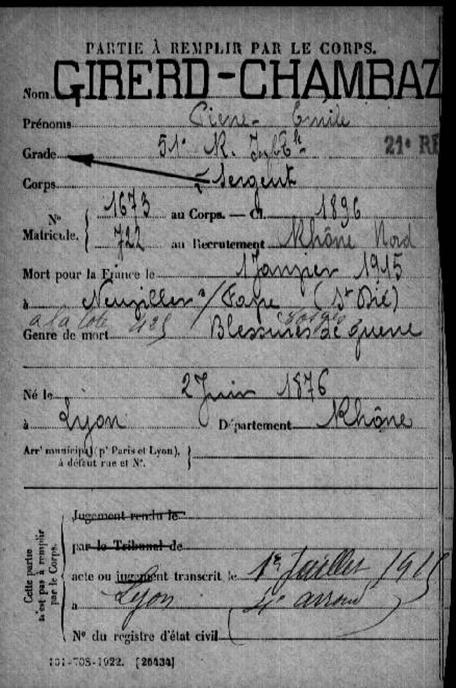 PARTIE À REMPLIR PAR LE CORPS.
Nom GIRERD-CHAMBAZ
Prénoms Pierre Emile
Grade 51e R. Inf. 21e RE
Corps Sergent
N° Matricule. 1673 au Corps. — Cl. 1896
722 au Recrutement Rhône Nord
Mort pour la France le 1 Janvier 1915
à Neuviller s/Fave (St Dié)
à la cote 423
Genre de mort Blessures de guerre
Né le 2 Juin 1876
à Lyon Département Rhône
Arrt municipal (pr Paris et Lyon),
à défaut rue et N°.
Cette partie n'est pas à remplir par le Corps.
Jugement rendu le
par le Tribunal de
acte ou jugement transcrit le 1er Juillet 1915
à Lyon 4e arrond
N° du registre d'état civil
101-708-1922. [26434]